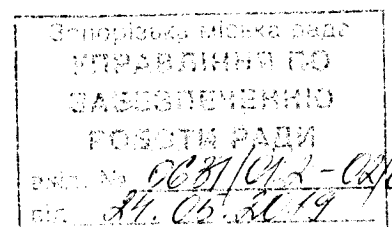 Запорізька міська рада
УПРАВЛІННЯ ПО
ЗАБЕЗПЕЧЕННЮ
РОБОТИ РАДИ
вхід. № 0631/01.2-02/
від 24.05.2019